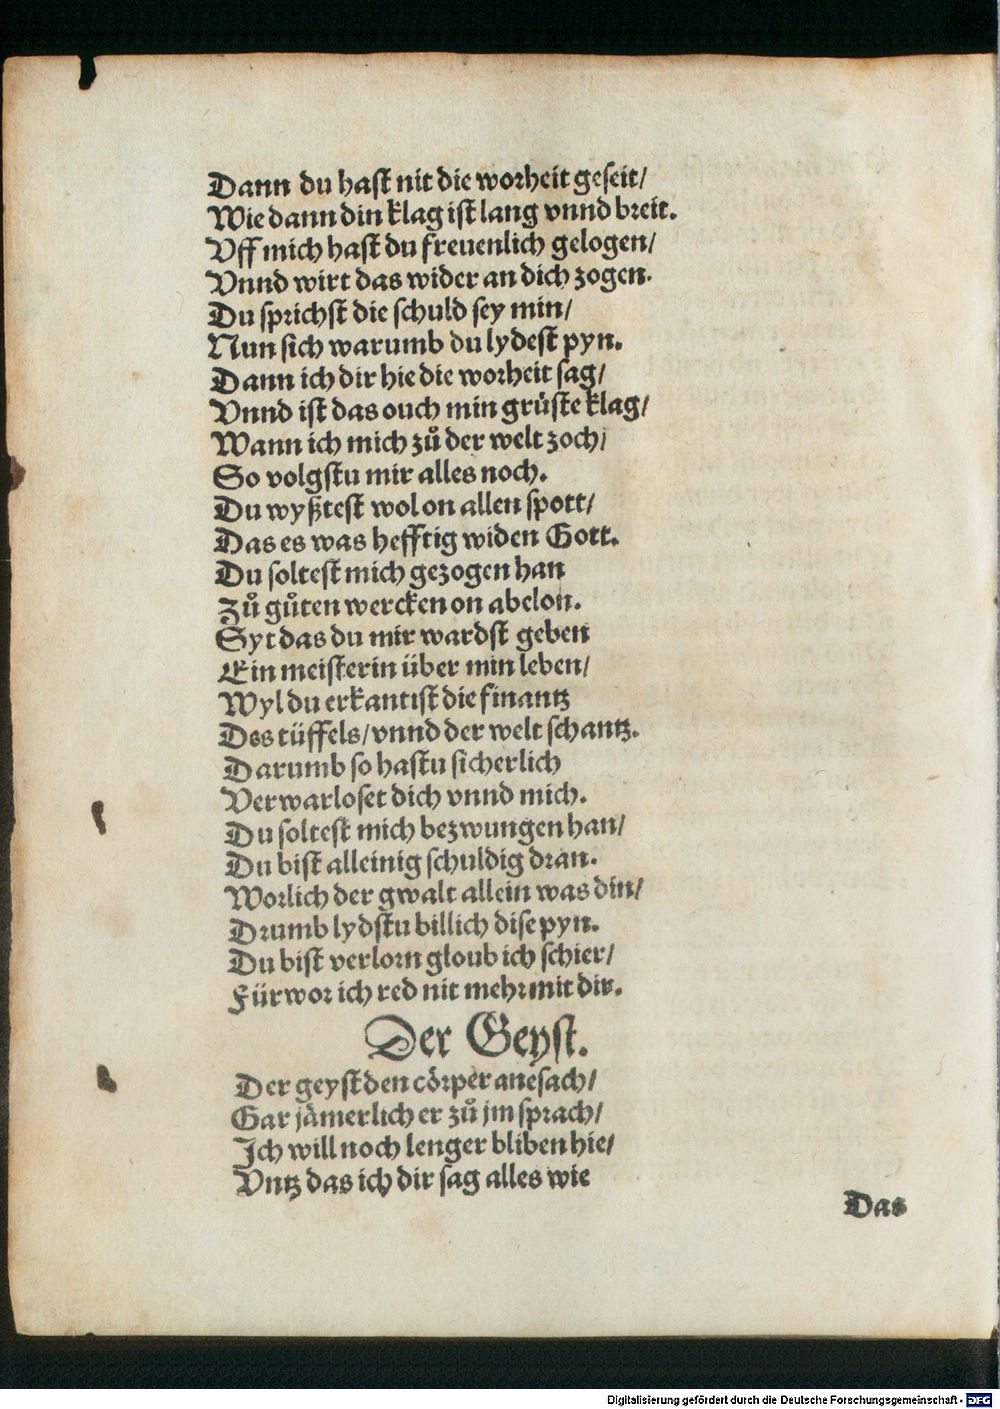 Dann du hast nit die worheit geseit/
Wie dann din klag ist lang vnnd breit.
Vff mich hast du freuenlich gelogen/
Vnnd wirt das wider an dich zogen.
Du sprichst die schuld sey min/
Nun sich warumb du lydest pyn.
Dann ich dir hie die worheit sag/
Vnnd ist das ouch min grüste klag/
Wann ich mich zů der welt zoch/
So volgstu mir alles noch.
Du wyßtest wol on allen spott/
Das es was hefftig widen Gott.
Du soltest mich gezogen han
Zů gůten wercken on abelon.
Syt das du mir wardst geben
Ein meisterin über min leben/
Wyl du erkantist die finantz
Des tüffels/ vnnd der welt schantz.
Darumb so hastu sicherlich
Verwarloset dich vnnd mich.
Du soltest mich bezwungen han/
Du bist alleinig schuldig dran.
Worlich der gwalt allein was din/
Drumb lydstu billich dise pyn.
Du bist verlorn gloub ich schier/
Fürwor ich red nit mehr mit dir.
Der Geyst.
Der geyst den cörper anesach/
Gar jämerlich er zů jm sprach/
Ich will noch lenger bliben hie/
Vntz das ich dir sag alles wie
Das
Digitalisierung gefördert durch die Deutsche Forschungsgemeinschaft - DFG